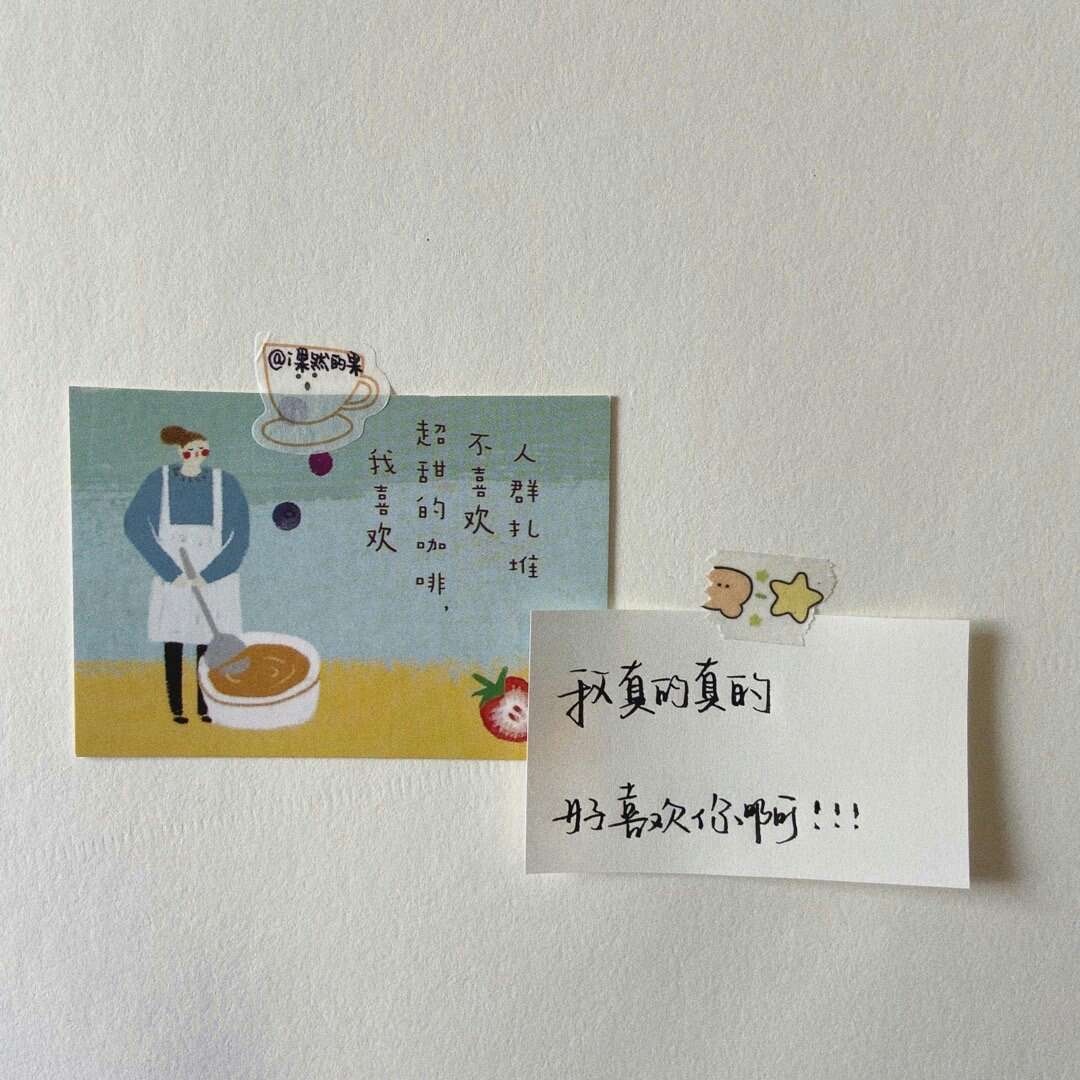 @i果然的果
人群扎堆
不喜欢
超甜的咖啡，
我喜欢
我真的真的
好喜欢你啊！！！